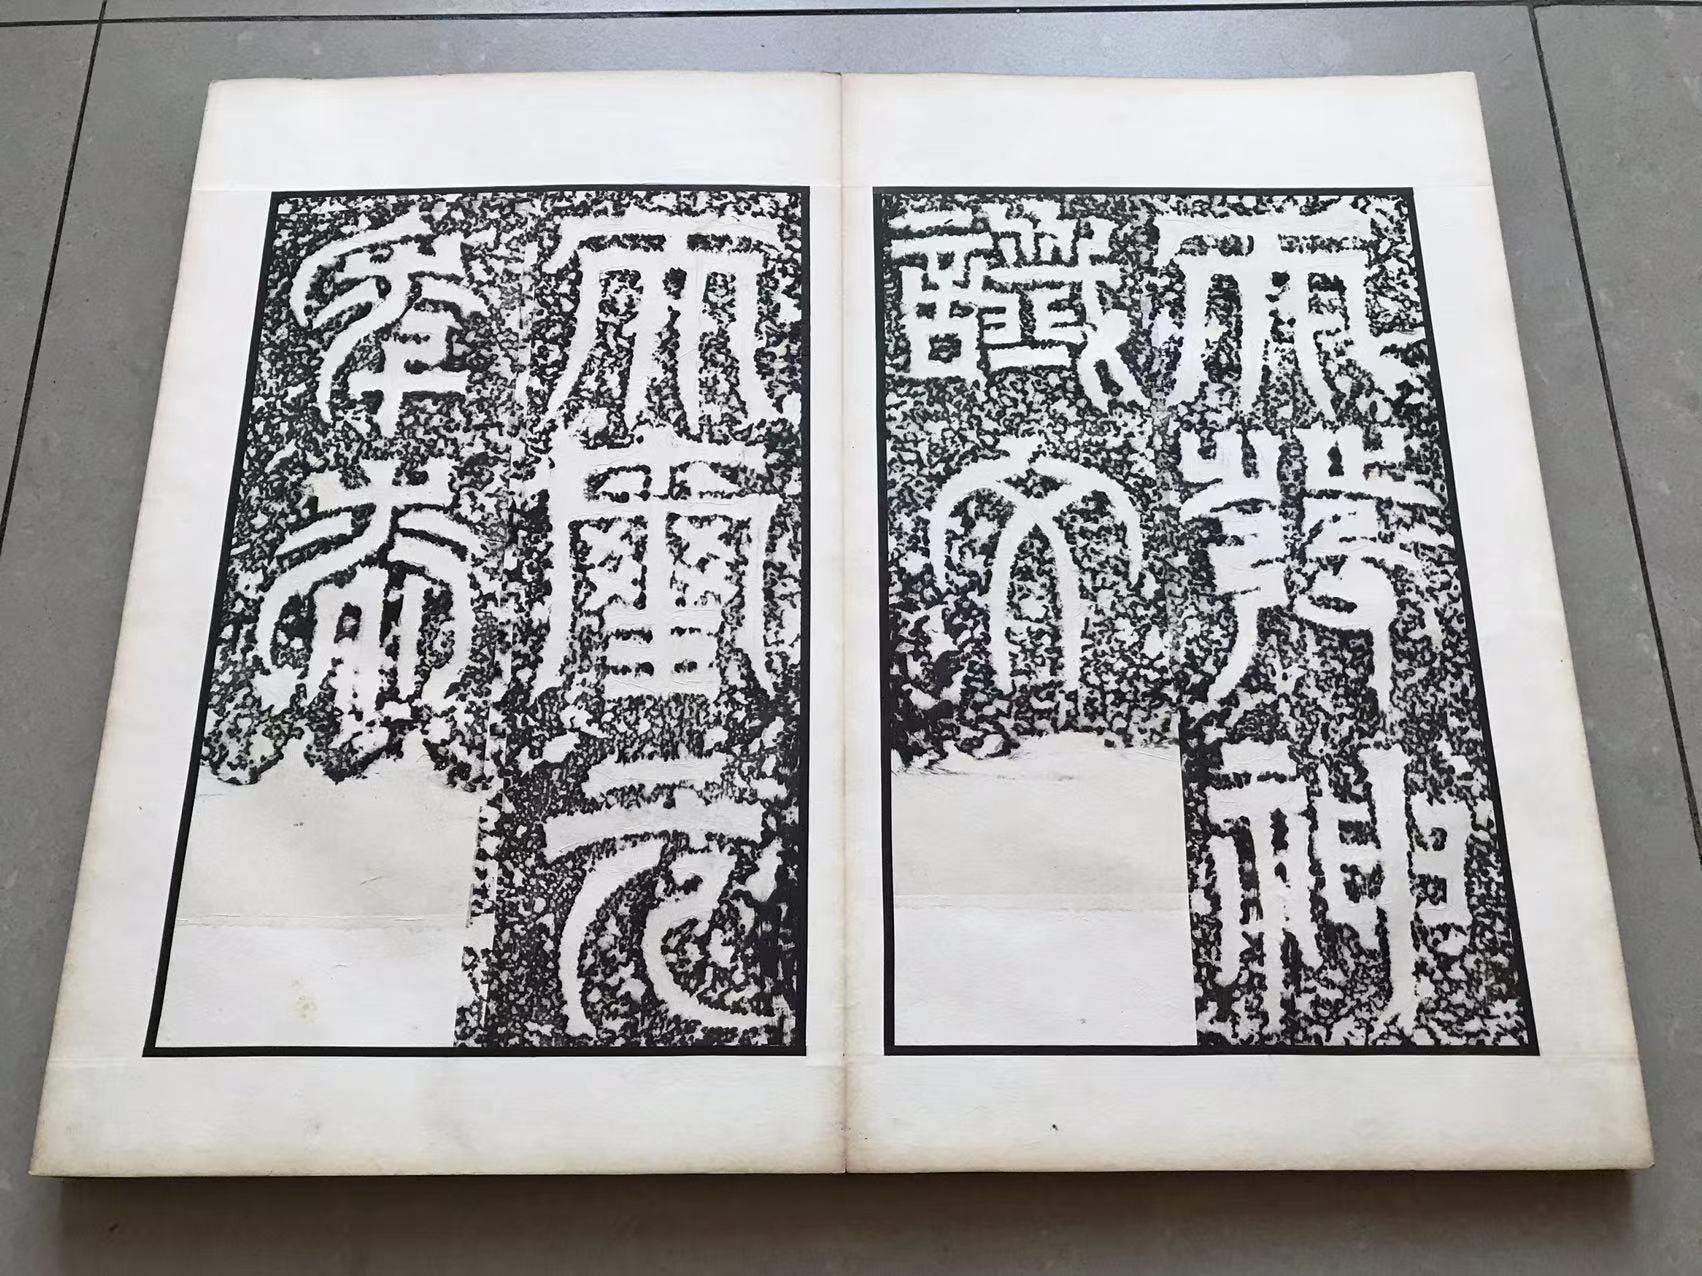 天發神
讖文
天璽元